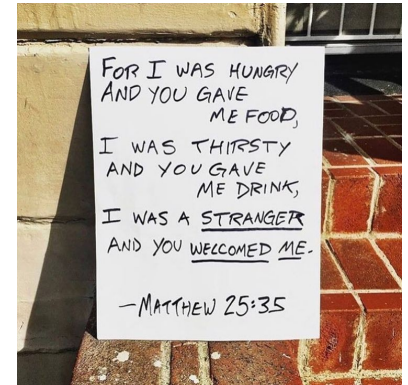 FOR I WAS HUNGRY
AND YOU GAVE
ME FOOD,
I WAS THIRSTY
AND YOU GAVE
ME DRINK,
I WAS A STRANGER
AND YOU WELCOMED ME.
—MATTHEW 25:35